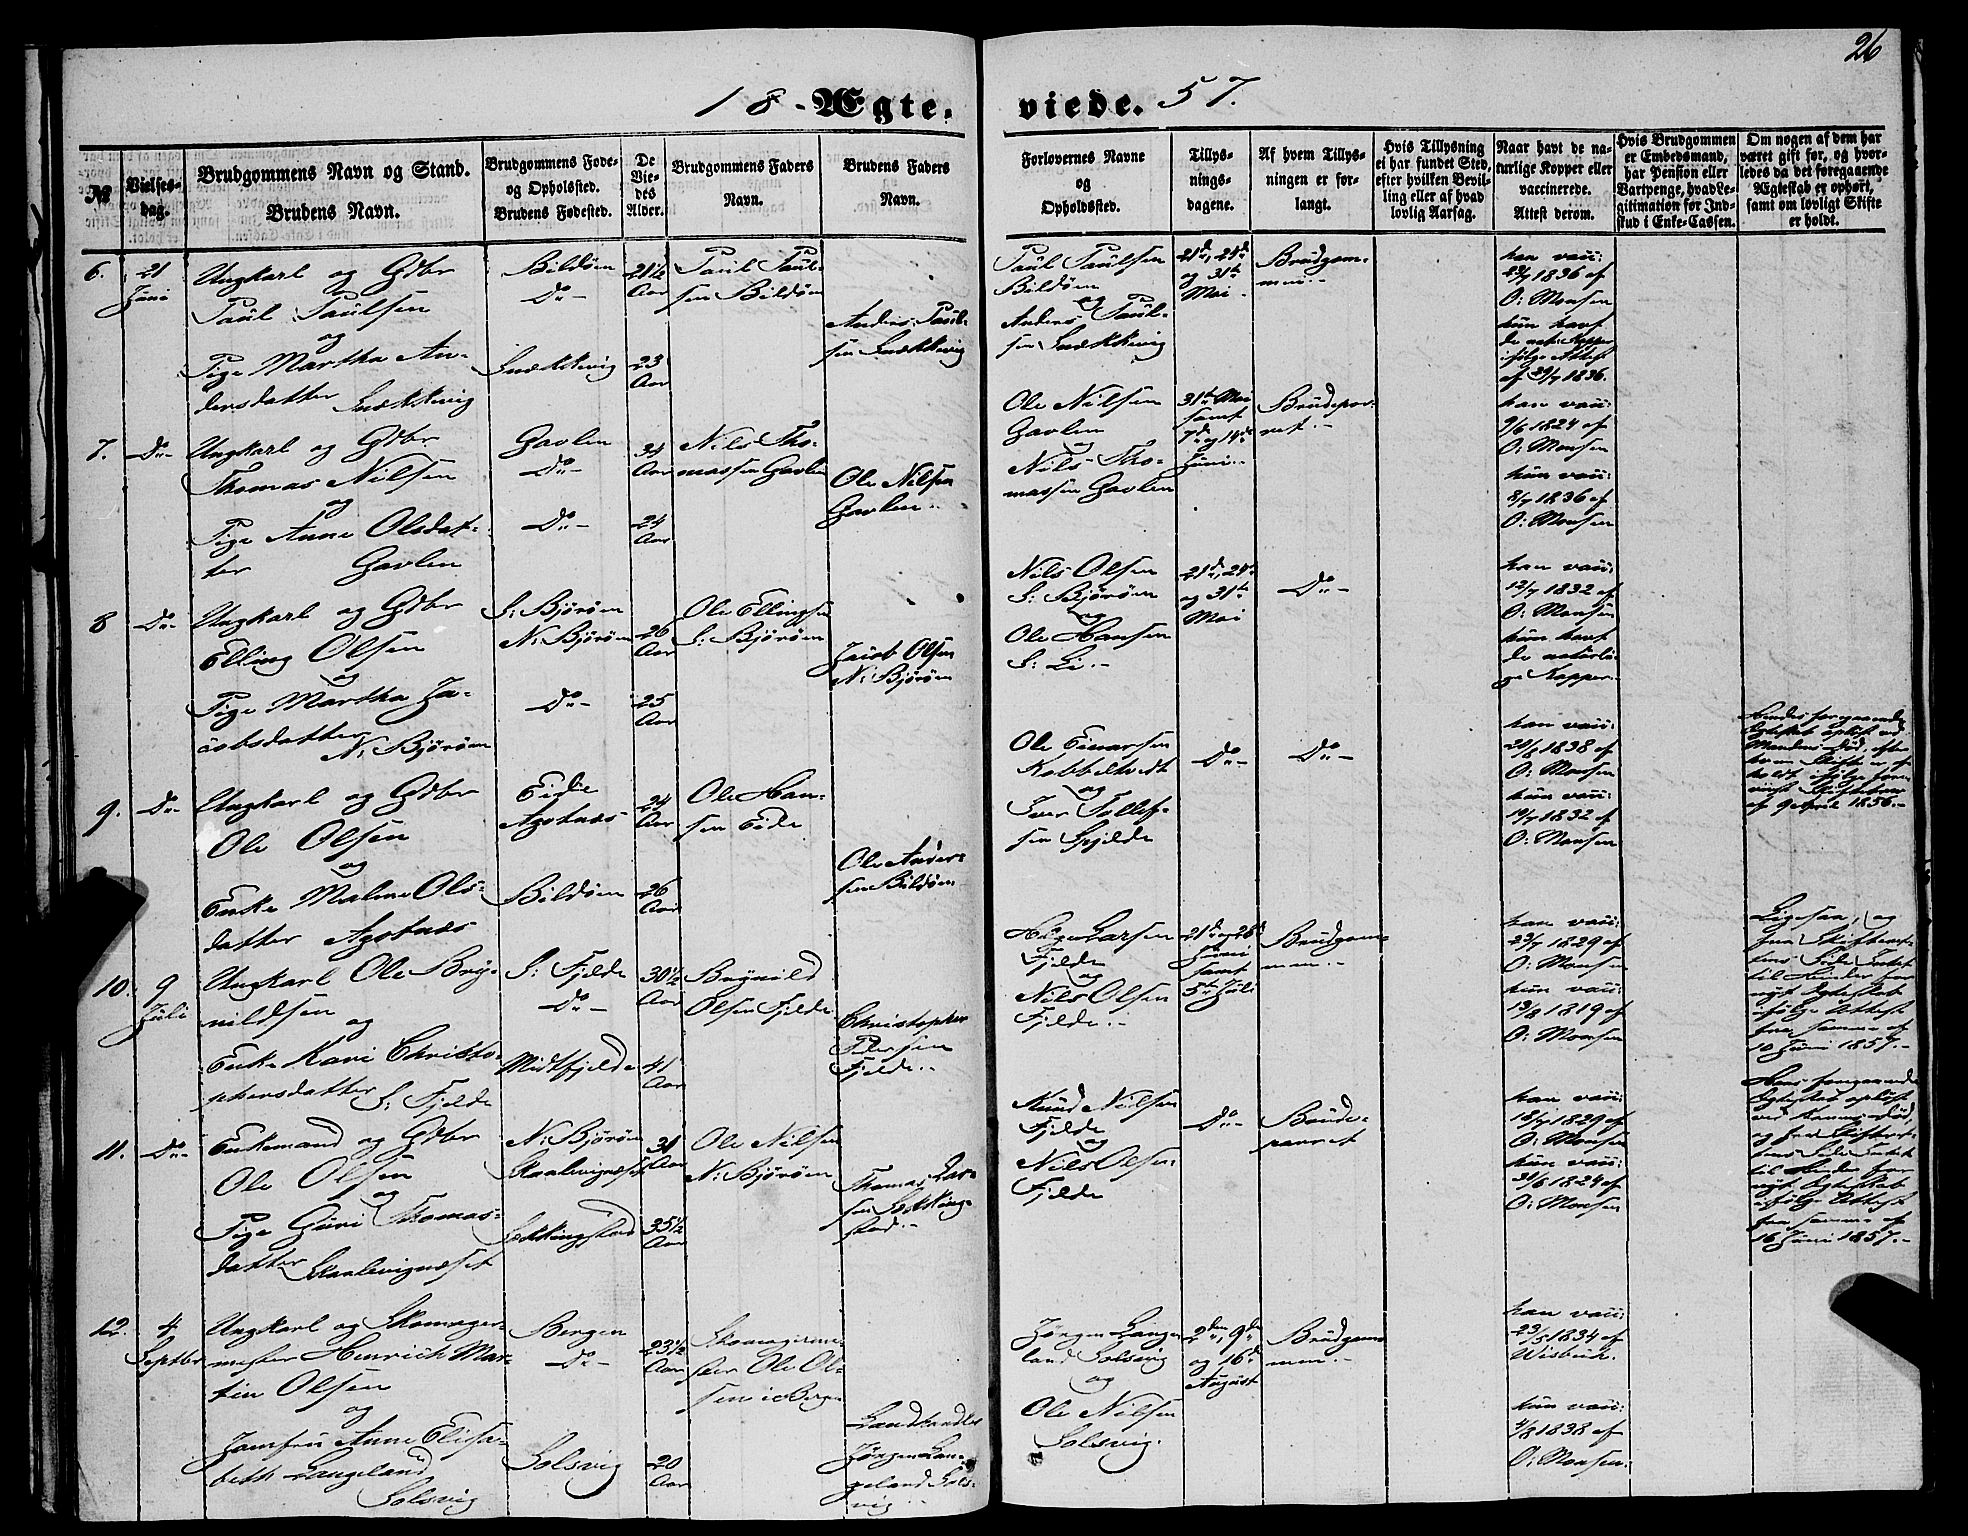 26
18-Ægte-
viede. 57.
№
Vielses-
dag.
Brudgommens Navn og Stand.
Brudens Navn.
Brudgommens Føde-
og Opholdssted.
Brudens Fødested.
De
Vie-
des
Alder.
Brudgommens Faders
Navn.
Brudens Faders
Navn.
Forlovernes Navne
og
Opholdssted.
Tillys-
nings-
dagene.
Af hvem Tillys-
ningen er for-
langt.
Hvis Tillysning
ei har fundet Sted,
efter hvilken Bevil-
ling eller af hvad
lovlig Aarsag.
Naar havt de na-
turlige Kopper eller
vaccinerede.
Attest derom.
Hvis Brudgommen
er Embedsmand,
har Pension eller
Vartpenge, hvad Le-
gitimation for Ind-
skud i Enke-Cassen.
Om nogen af dem har
været gift før, og hvor-
ledes da det foregaaende
Ægteskab er ophørt,
samt om lovligt Skifte
er holdt.
6.
21
Juni
Ungkarl og Gdbr
Paul Paulsen
og
Pige Martha An-
dersdatter Snekkevig
Bildøen
Do-
Snekkevig
21½
Aar
23
Aar
Paul Paul-
sen Bildøen
Anders Paul-
sen Snekkevig
Paul Paulsen
Bildøen
og
Anders Paul-
sen Snekkevig
21de, 24de
og 31te
Mai
Brudgom-
men.-
han vacc:
23/7 1836 af
O: Monsen
hun havt
de nat: Kopper
ifølge Attest
af 29/7 1836.
7.
Do-
Ungkarl og Gdbr
Thomas Nilsen
og
Pige Anne Olsdat-
ter Gavlen
Gavlen
Do-
Do-
34
Aar
24
Aar
Nils Tho-
massen Gavlen
Ole Nilsen
Gavlen.-
Ole Nilsen
Gavlen
og
Nils Tho-
massen Gavlen
31te Mai
samt
7de og 14de
Juni.-
Brudepar-
ret.-
han vacc:
9/6 1824 af
O: Monsen
hun vacc:
8/7 1836 af
O: Monsen
8
Do-
Ungkarl og Gdbr
Elling Olsen
og
Pige Martha Ja-
cobsdatter
N: Bjørøen
S: Bjørøen
N: Bjørøen
Do-
26
Aar
25
Aar
Ole Ellingsen
S: Bjørøen
Jacob Olsen
N: Bjørøen
Nils Olsen
S: Bjørøen
og
Ole Hansen
S: Li.-
21de, 24de
og 31te
Mai
Do-
han vacc:
12/7 1832 af
O: Monsen
hun havt
de naturli-
ge Kopper.
9.
Do-
Ungkarl og Gdbr
Ole Olsen
og
Enke Malene Ols-
datter Agotnæs
Eide
Agotnæs
Bildøen
24
Aar
26
Aar
Ole Han-
sen Eide
Ole Ander-
sen Bildøen
Ole Einarsen
Kobbeltvedt
og
Iver Tollef-
sen Spjelde
Do-
Do-
han vacc:
1838 af
O: Monsen
hun vacc:
19/7 1832 af
O: Monsen
Hendes foregaaende
Ægteskab opløst ved
Mandens Død, efter
hvem Skifte er af-
holdt ifølge
af 9 April 1856.-
10.
9
Juli
Ungkarl Ole Bry-
nildsen
og
Enke Kari Christo-
phersdatter
S: Fjelde
S: Fjelde
Do-
Midtfjelde
30½
Aar
41
Aar
Brynild
Olsen Fjelde
Christopher
Pedersen
Fjelde.-
Larsen
Fjelde
og
Nils Olsen
Fjelde.-
21de og 28de
Juni
samt
5te Juli
Brudgom-
men.-
han vacc:
23/7 1829 af
O: Monsen
hun vacc:
13/8 1819 af
O: Monsen
Ligesaa, og
fra Skifteret-
tens Side Intet
til Hinder for
nyt Ægteskab
ifølge Attest
fra samme af
10 Juni 1857.-
11.
Do-
Enkemand og Gdbr
Ole Olsen
og
Pige Guri Thomas-
datter Skaalevignæset
N: Bjørøen
Skaalevignæset
Sekkingstad
31
Aar
35½
Aar
Ole Nilsen
N: Bjørøen
Thomas Lar-
sen Sekking-
stad.-
Knud Nilsen
Fjelde
og
Nils Olsen
Fjelde
Do-
Brude-
parret
han vacc:
18/7 1829 af
O: Monsen
hun vacc:
1824 af
O: Monsen
Hans foregaaende
Ægteskab opløst
ved Konens Død,
og fra Skifteret-
tens Side Intet
til Hinder for
nyt Ægteskab
ifølge Attest
fra samme af
16 Juni 1857.-
12.
4
Septbr
Ungkarl og Skomager-
mester Henrich Mar-
tin Olsen
og
Jomfru Anne Elisa-
beth Langeland
Solsvig
Bergen
Do-
Solsvig
23½
Aar
20
Aar
Skomagerme-
ster Ole Ol-
sen i Bergen
Landhandler
Jørgen Lan-
geland Sols-
vig
Jørgen Lange-
land Solsvig
og
Ole Nilsen
Solsvig.
2den, 9de
og 16de
August
Brudgom-
men.-
han vacc:
23/5 1834 af
Wisbech.
hun vacc:
4/8 1838 af
O: Monsen.